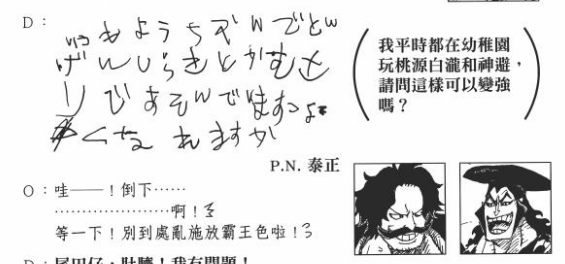 D：
いつもようちえんでとう
げんしらたきとかむさ
りであそんでますっょ
くなれますか
我平時都在幼稚園
玩桃源白瀧和神避，
請問這樣可以變強
嗎？
P.N. 泰正
O：哇——！倒下……
………………………啊！3
等一下！別到處亂施放霸王色啦！3